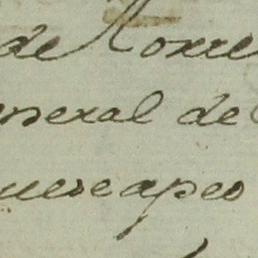 de Torre
eneral de
uese apeo